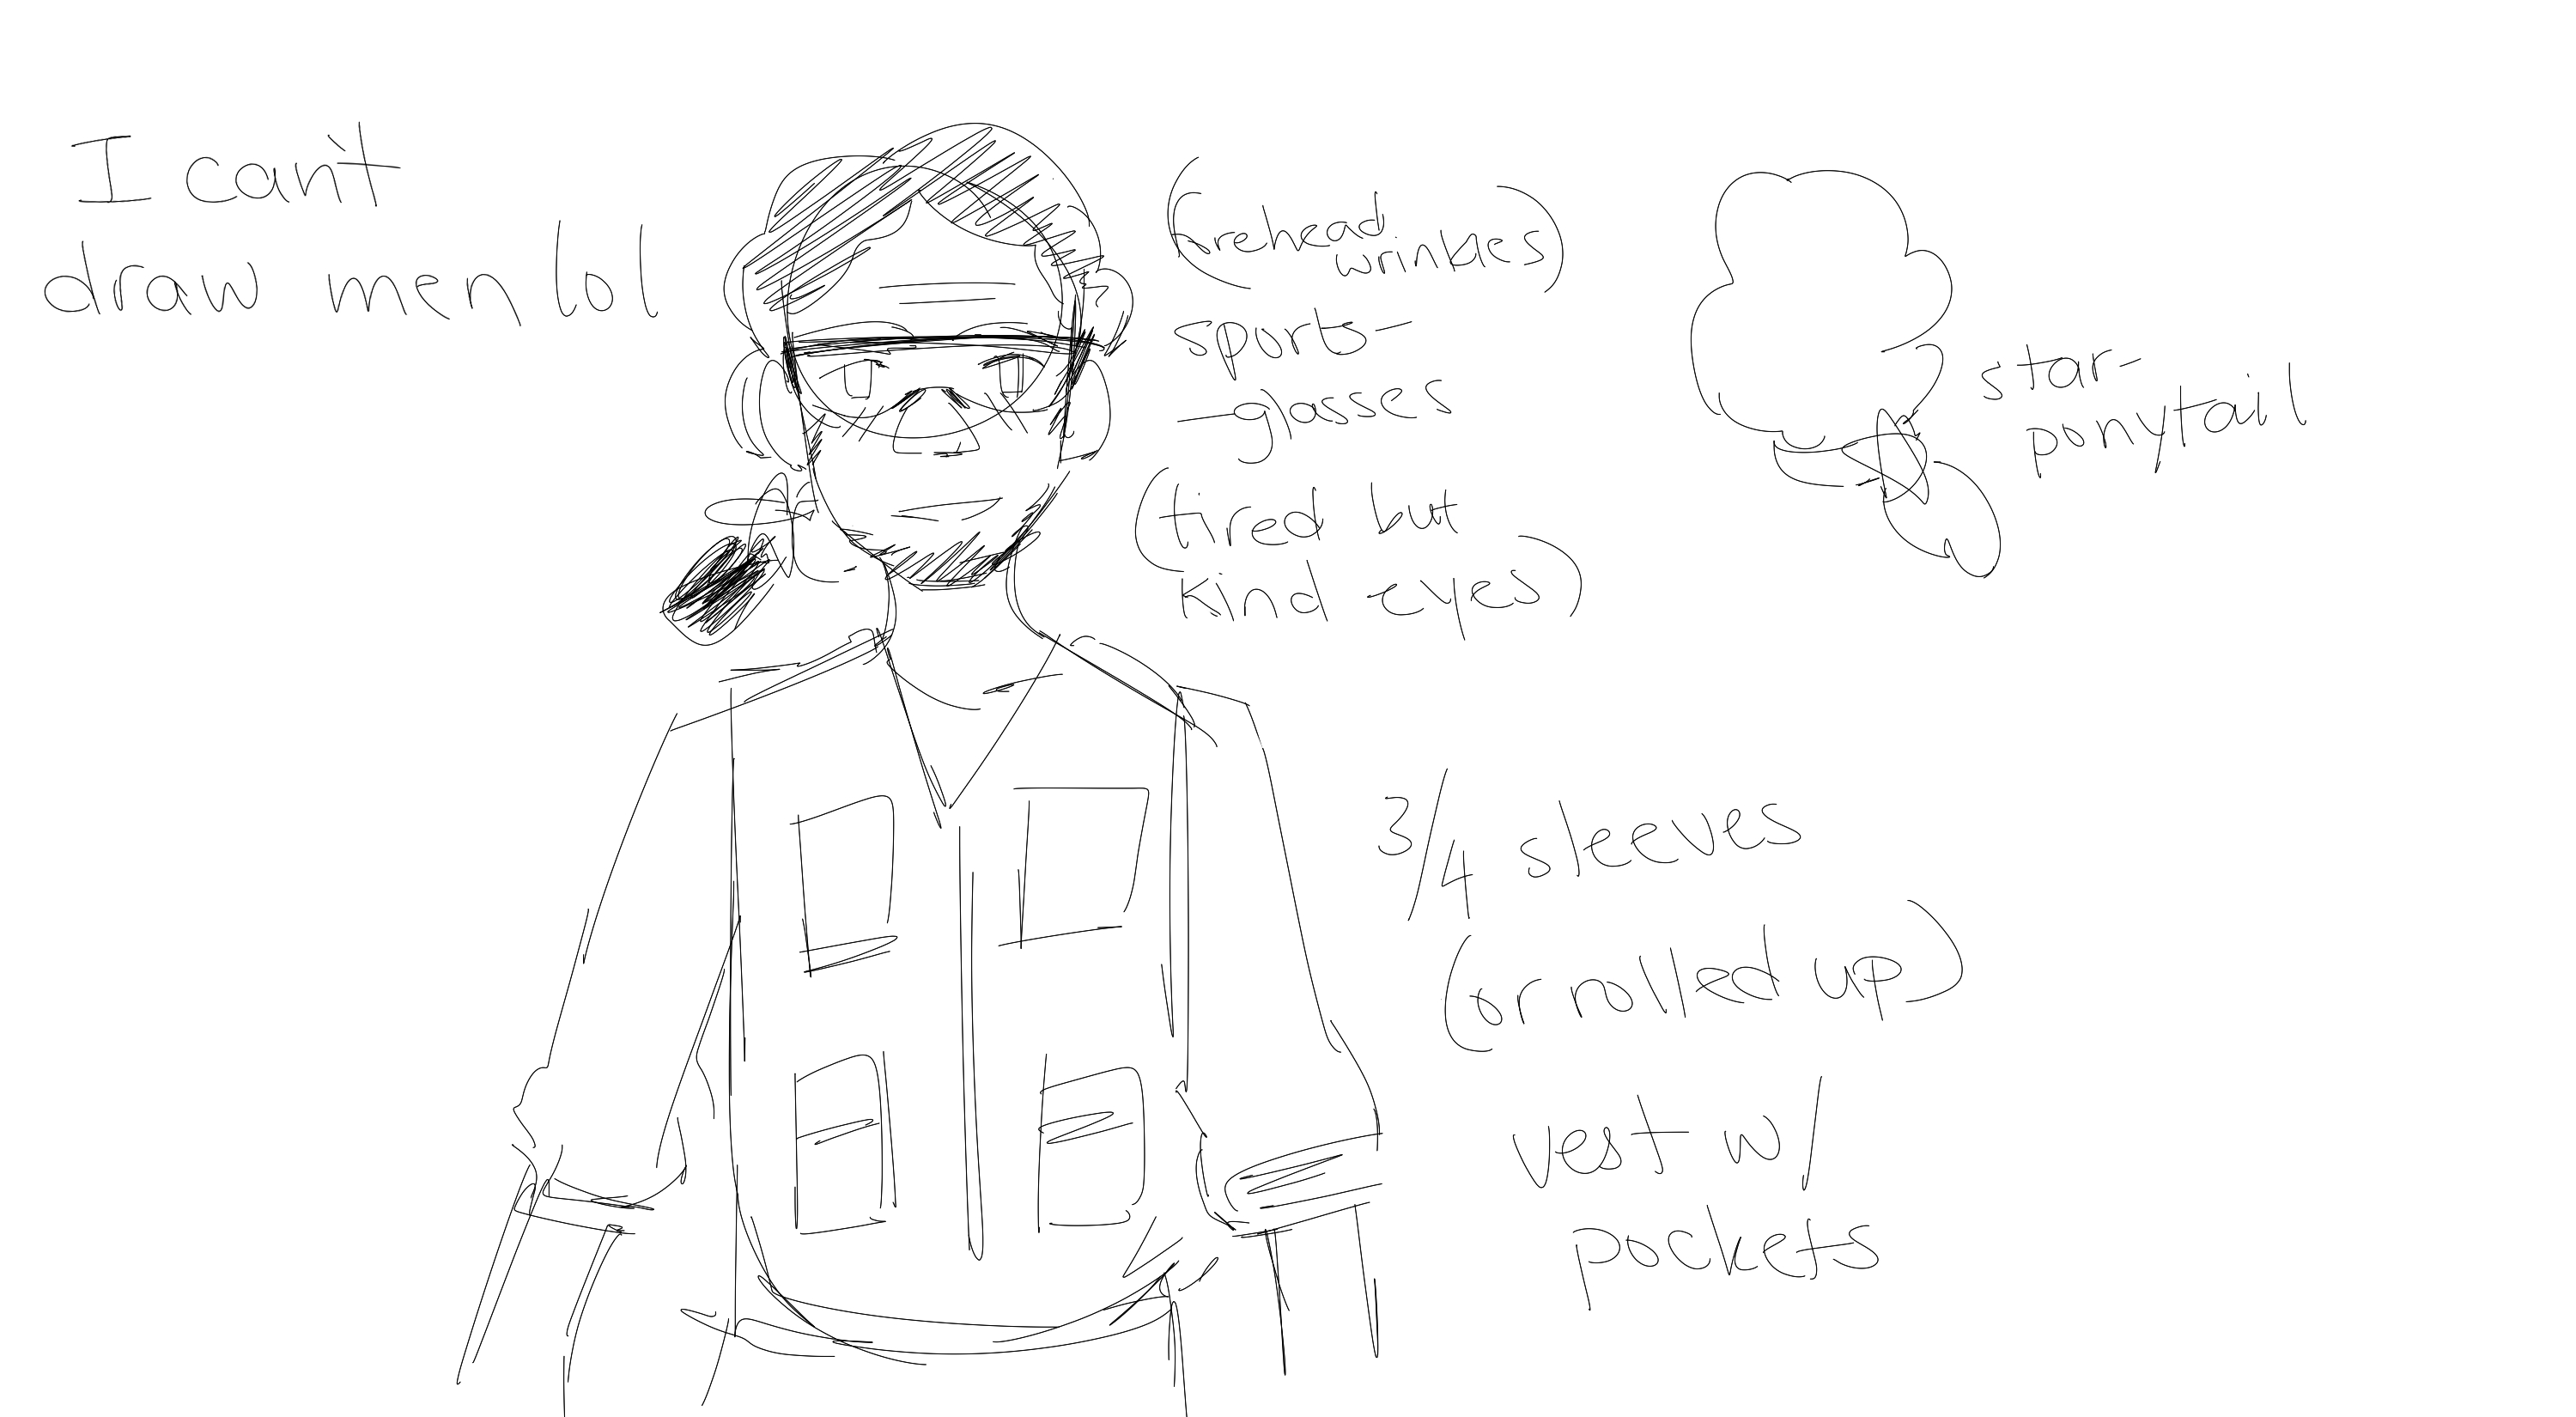 I can't
draw men lol
(forehead
wrinkles)
sports-
-glasses
(tired but
kind eyes)
star-
ponytail
3/4 sleeves
(or rolled up)
vest w/
pockets